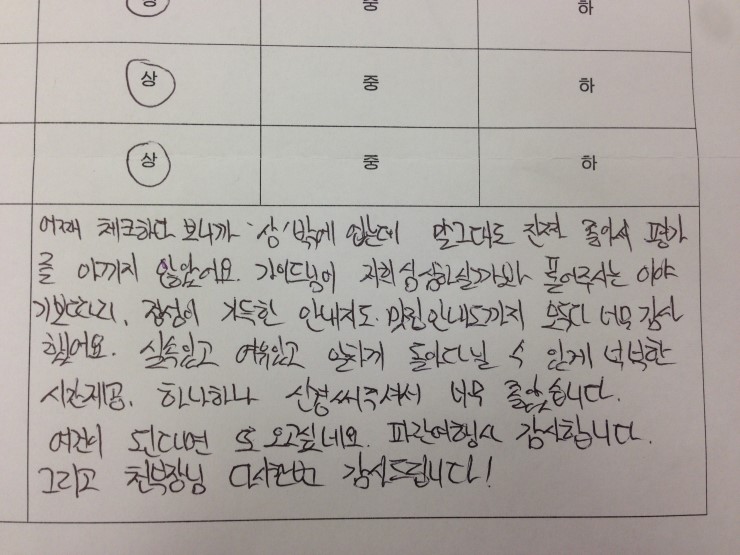 상 중 하
상 중 하
상 중 하
어째 체크하다 보니까 '상'밖에 없는데 말그대로 진짜 좋아서 평가
를 아끼지 않았어요. 가이드님이 저희 심심하실까봐 풀어주시는 이야
기보따리, 정성이 가득한 안내지도·맛집안내도까지 모두다 너무 감사
했어요. 실속있고 여유있고 알차게 돌아다닐 수 있게 넉넉한
시간제공, 하나하나 신경써주셔서 너무 좋았습니다.
여건이 된다면 또 오고싶네요. 파란여행사 감사합니다.
그리고 천부장님 다시한번 감사드립니다!